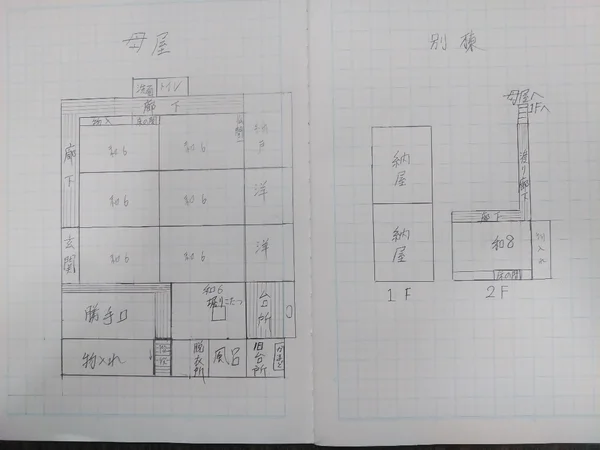 母屋
洗面 トイレ
廊下
物入 床の間
和6 和6 納戸
廊下
和6 和6 洋
玄関
和6 和6 洋
和6
掘りこたつ
勝手口
台所
物入れ
脱衣所
風呂
旧台所
別棟
母屋へ
1Fへ
渡り廊下
納屋
納屋
1F
廊下
和8
物入れ
床の間
2F